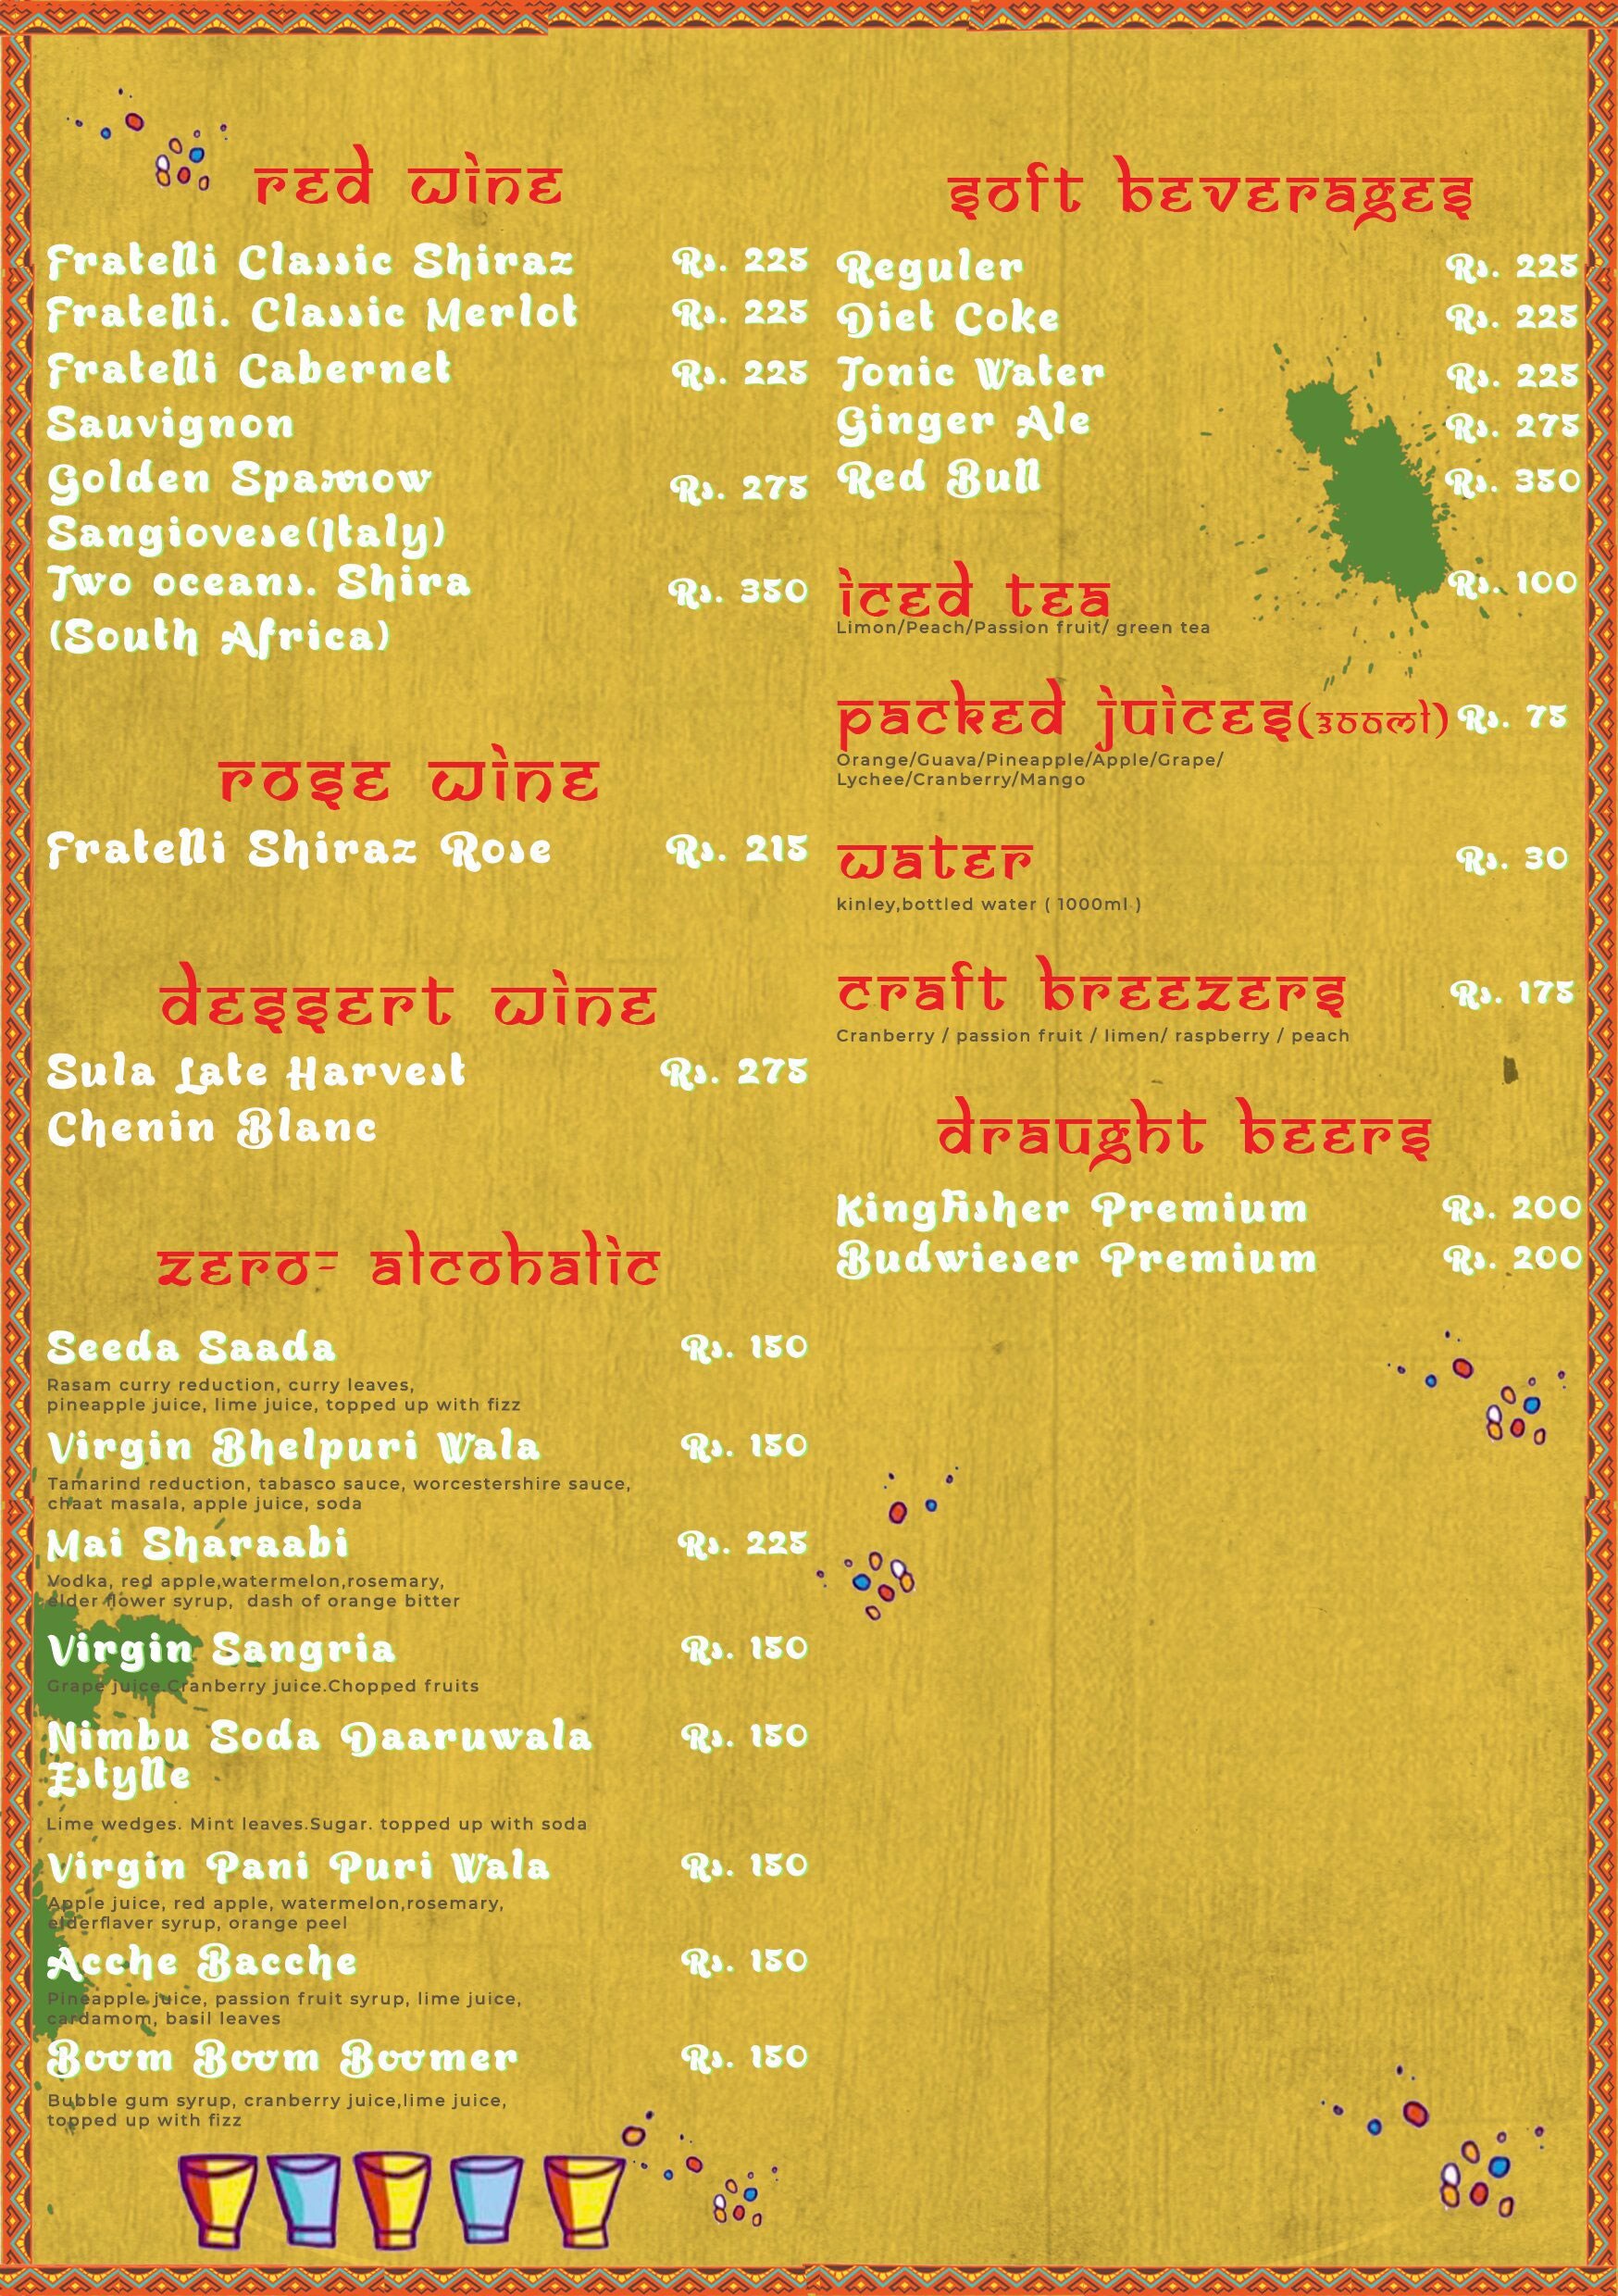 red wine
Fratelli Classic Shiraz Rs. 225
Fratelli. Classic Merlot Rs. 225
Fratelli Cabernet Rs. 225
Sauvignon
Golden Sparrow Rs. 275
Sangiovese(Italy)
Two oceans. Shira Rs. 350
(South Africa)
rose wine
Fratelli Shiraz Rose Rs. 215
dessert wine
Sula Late Harvest Rs. 275
Chenin Blanc
zero- alcohalic
Seeda Saada Rs. 150
Rasam curry reduction, curry leaves,
pineapple juice, lime juice, topped up with fizz
Virgin Bhelpuri Wala Rs. 150
Tamarind reduction, tabasco sauce, worcestershire sauce,
chaat masala, apple juice, soda
Mai Sharaabi Rs. 225
Vodka, red apple,watermelon,rosemary,
elder flower syrup, dash of orange bitter
Virgin Sangria Rs. 150
Grape juice.Cranberry juice.Chopped fruits
Nimbu Soda Daaruwala Rs. 150
Estylle
Lime wedges. Mint leaves.Sugar. topped up with soda
Virgin Pani Puri Wala Rs. 150
Apple juice, red apple, watermelon,rosemary,
elderflaver syrup, orange peel
Acche Bacche Rs. 150
Pineapple juice, passion fruit syrup, lime juice,
cardamom, basil leaves
Boom Boom Boomer Rs. 150
Bubble gum syrup, cranberry juice,lime juice,
topped up with fizz
soft beverages
Reguler Rs. 225
Diet Coke Rs. 225
Tonic Water Rs. 225
Ginger Ale Rs. 275
Red Bull Rs. 350
iced tea Rs. 100
Limon/Peach/Passion fruit/ green tea
packed juices(300ml) Rs. 75
Orange/Guava/Pineapple/Apple/Grape/
Lychee/Cranberry/Mango
water Rs. 30
kinley,bottled water ( 1000ml )
craft breezers Rs. 175
Cranberry / passion fruit / limen/ raspberry / peach
draught beers
Kingfisher Premium Rs. 200
Budwieser Premium Rs. 200